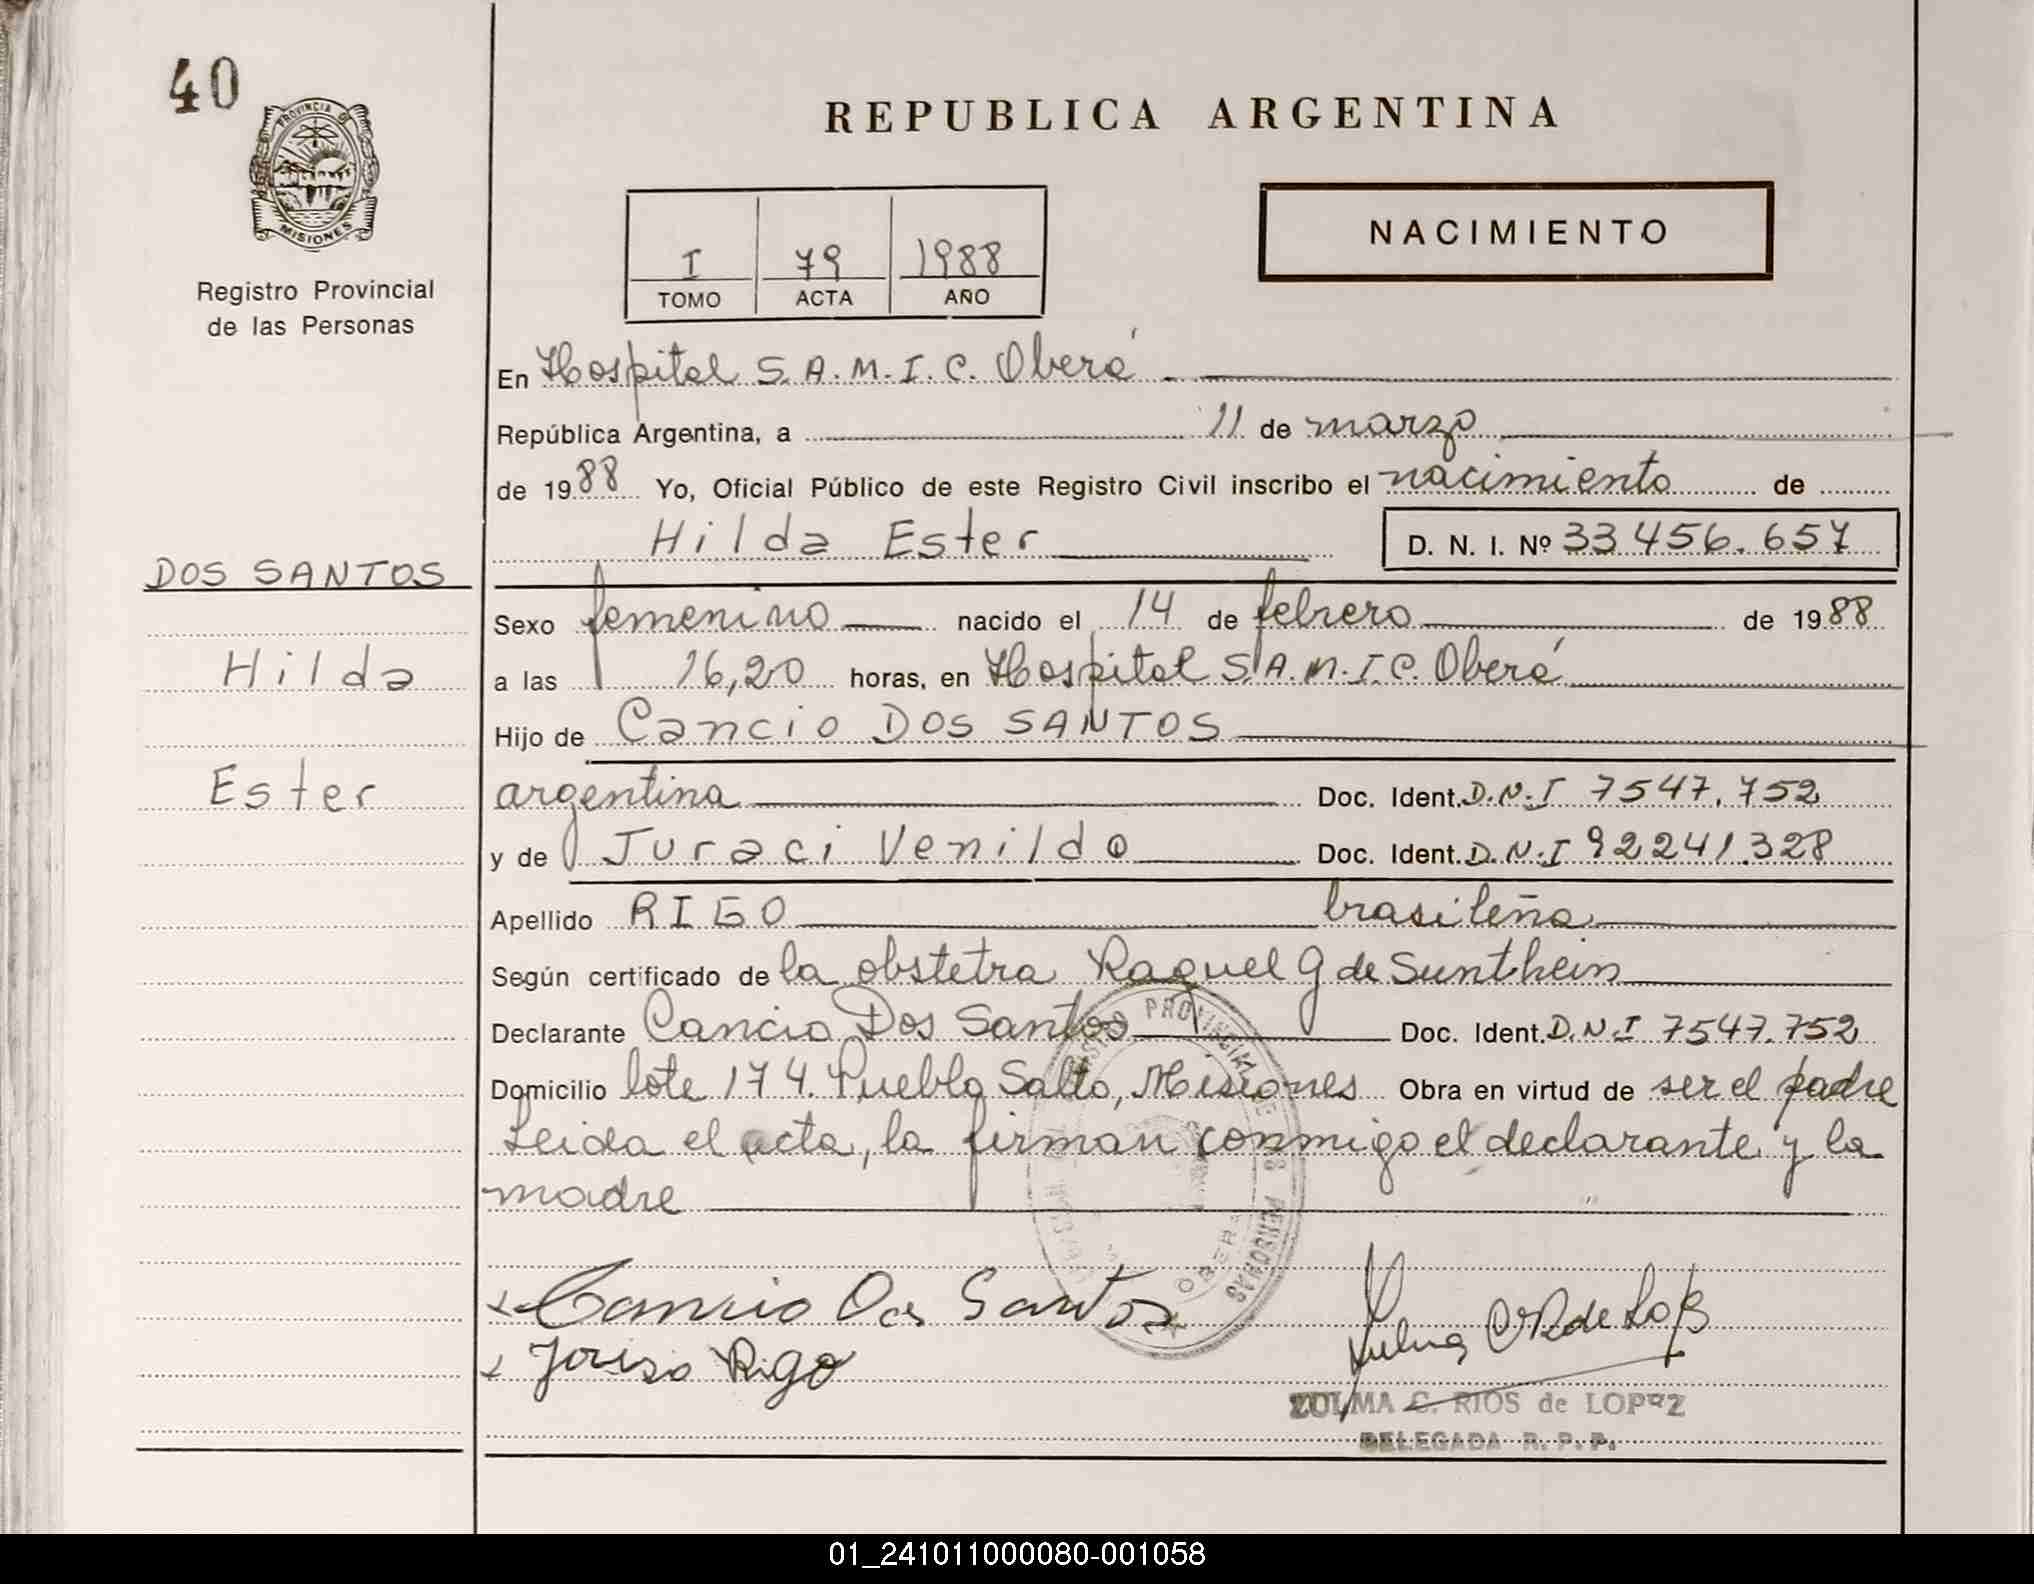 40
PROVINCIA D
MISIONES
Registro Provincial
de las Personas
REPUBLICA ARGENTINA
I 79 1988
TOMO ACTA AÑO
NACIMIENTO
En Hospital S.A.M.I.C. Oberá
República Argentina, a 11 de marzo
de 1988 Yo, Oficial Público de este Registro Civil inscribo el nacimiento de
Hilda Ester D. N. I. Nº 33.456.657
DOS SANTOS
Sexo femenino nacido el 14 de febrero de 1988
Hilda
a las 16,20 horas, en Hospital S.A.M.I.C. Oberá
Hijo de Cancio DOS SANTOS
Ester
argentina Doc. Ident. D.N.I 7547.752
y de Juraci Venilda Doc. Ident. D.N.I 92241.328
Apellido RIGO brasileña
Según certificado de la obstetra Raquel G de Sunthein
Declarante Cancio Dos Santos Doc. Ident. D.N.I 7547.752
Domicilio lote 174. Pueblo Salto, Misiones Obra en virtud de ser el padre
Leida el acta, la firman conmigo el declarante y la
madre
PROVINCIAL DE LAS PERSONAS
OBERA
Cancio Dos Santos
Rigo
ZULMA C. RIOS de LOPEZ
DELEGADA R. P. P.
01_241011000080-001058